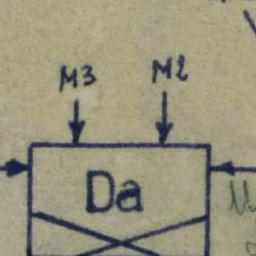 M3 M2
Da